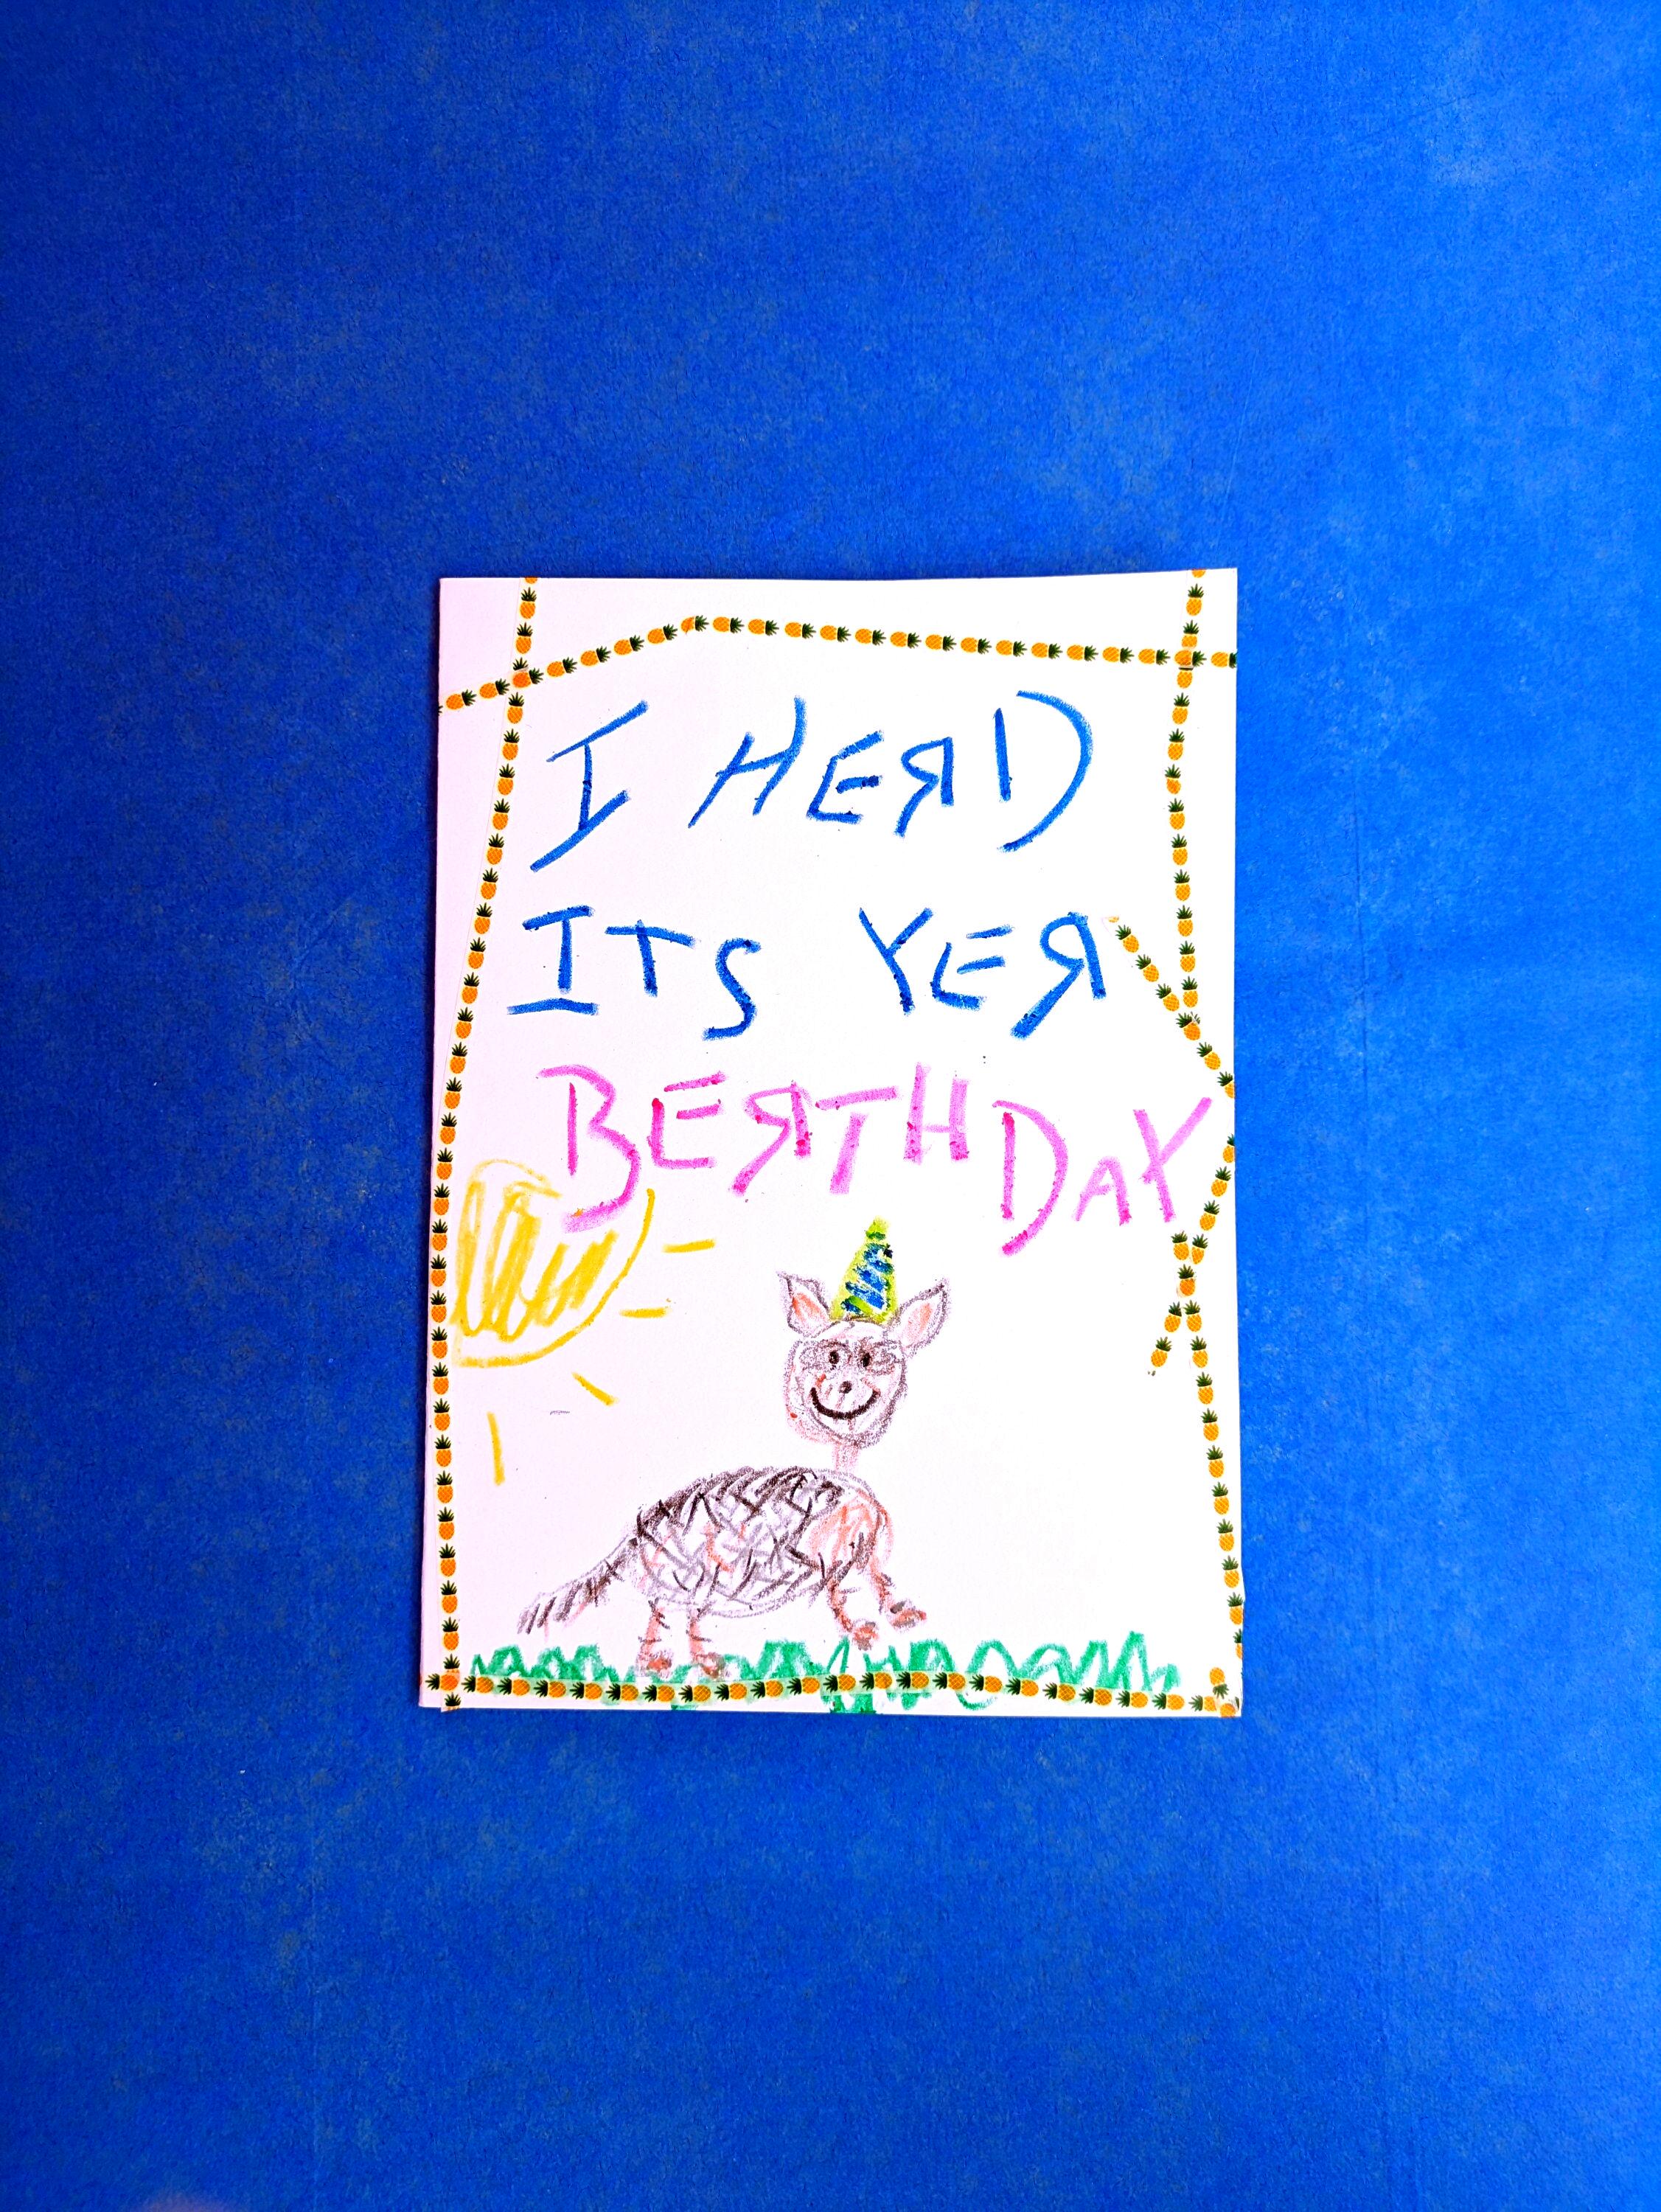 I HERD
ITS YER
BERTHDAY